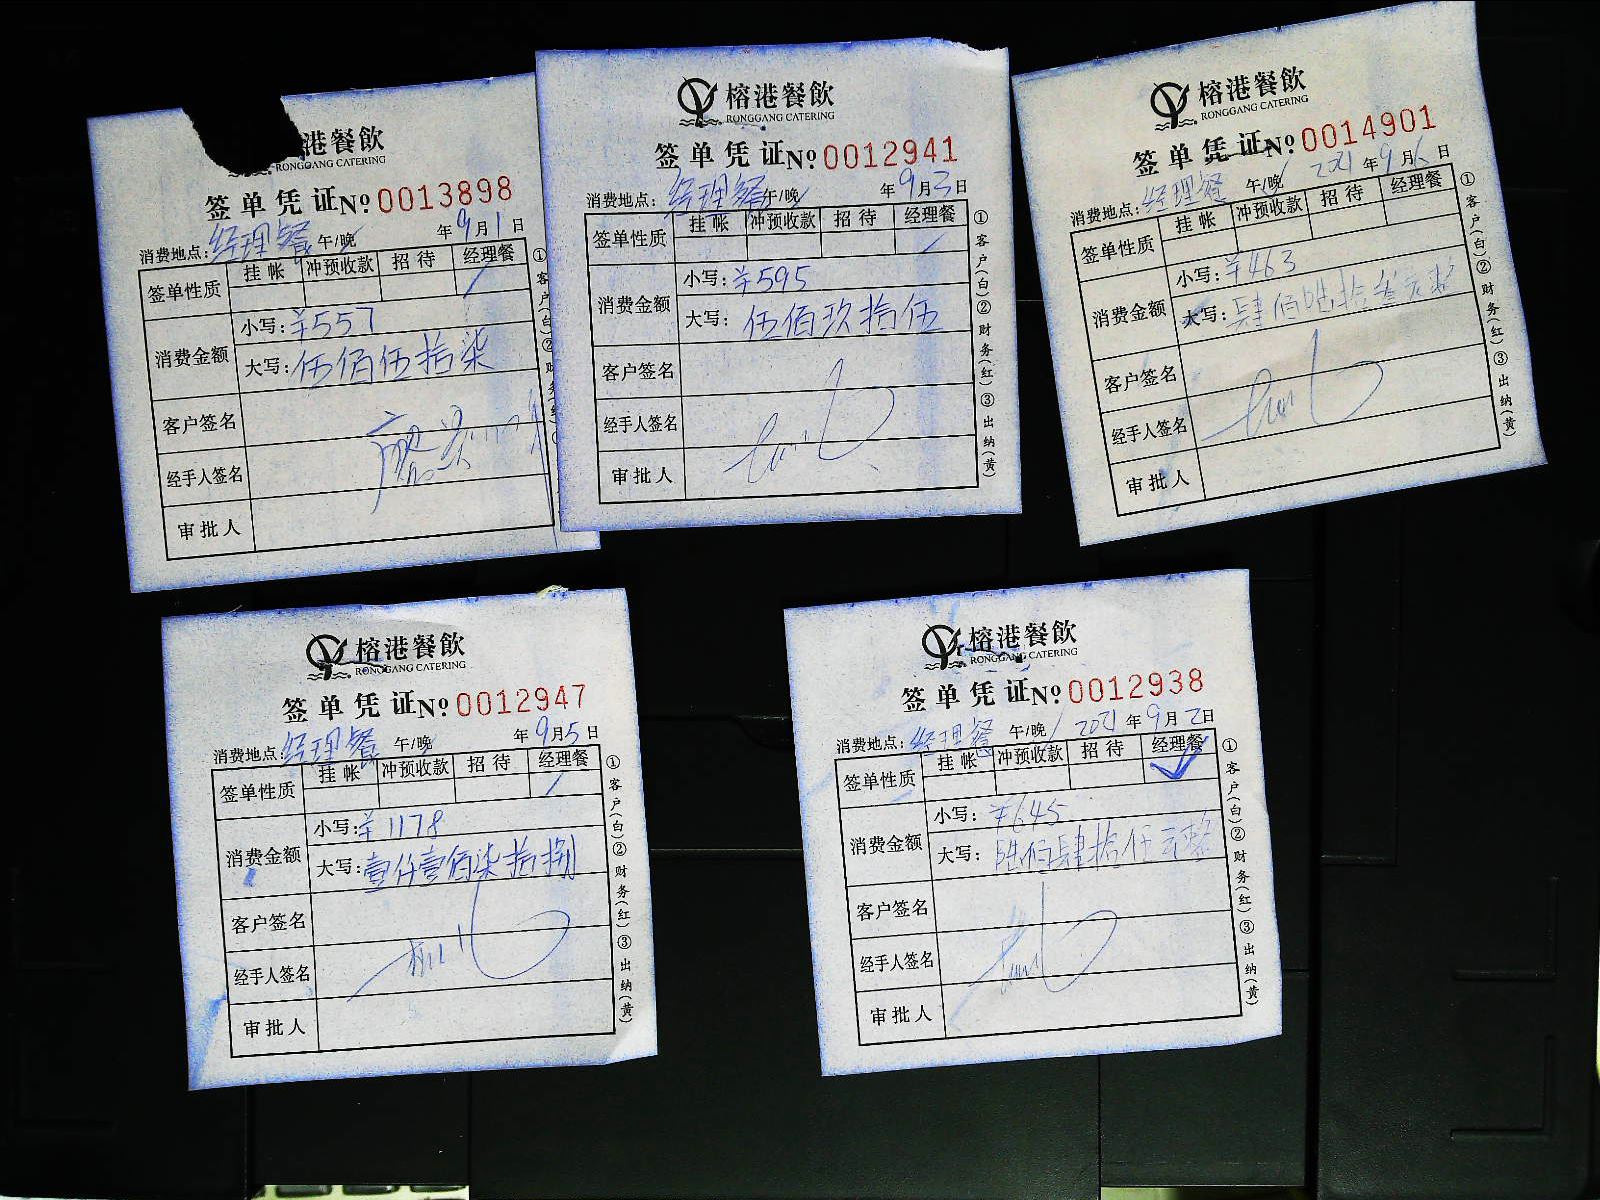 港餐飲
RONGGANG CATERING
签单凭证№0013898
消费地点:经理餐 午/晚 年9月1日
签单性质 挂帐 冲预收款 招待 经理餐
消费金额 小写:¥557
大写:伍佰伍拾柒
客户签名
经手人签名
审批人
①客户(白)②财务(红)
榕港餐飲
RONGGANG CATERING
签单凭证№0012941
消费地点:经理餐 午/晚 年9月3日
签单性质 挂帐 冲预收款 招待 经理餐
消费金额 小写:¥595
大写:伍佰玖拾伍
客户签名
经手人签名
审批人
①客户(白)②财务(红)③出纳(黄)
榕港餐飲
RONGGANG CATERING
签单凭证№0014901
消费地点:经理餐 午/晚 2021年9月6日
签单性质 挂帐 冲预收款 招待 经理餐
消费金额 小写:¥463
大写:肆佰陆拾叁元整
客户签名
经手人签名
审批人
①客户(白)②财务(红)③出纳(黄)
榕港餐飲
RONGGANG CATERING
签单凭证№0012947
消费地点:经理餐 午/晚 年9月5日
签单性质 挂帐 冲预收款 招待 经理餐
消费金额 小写:¥1178
大写:壹仟壹佰柒拾捌
客户签名
经手人签名
审批人
①客户(白)②财务(红)③出纳(黄)
榕港餐飲
RONGGANG CATERING
签单凭证№0012938
消费地点:经理餐 午/晚 2021年9月2日
签单性质 挂帐 冲预收款 招待 经理餐
消费金额 小写:¥645
大写:陆佰肆拾伍元整
客户签名
经手人签名
审批人
①客户(白)②财务(红)③出纳(黄)